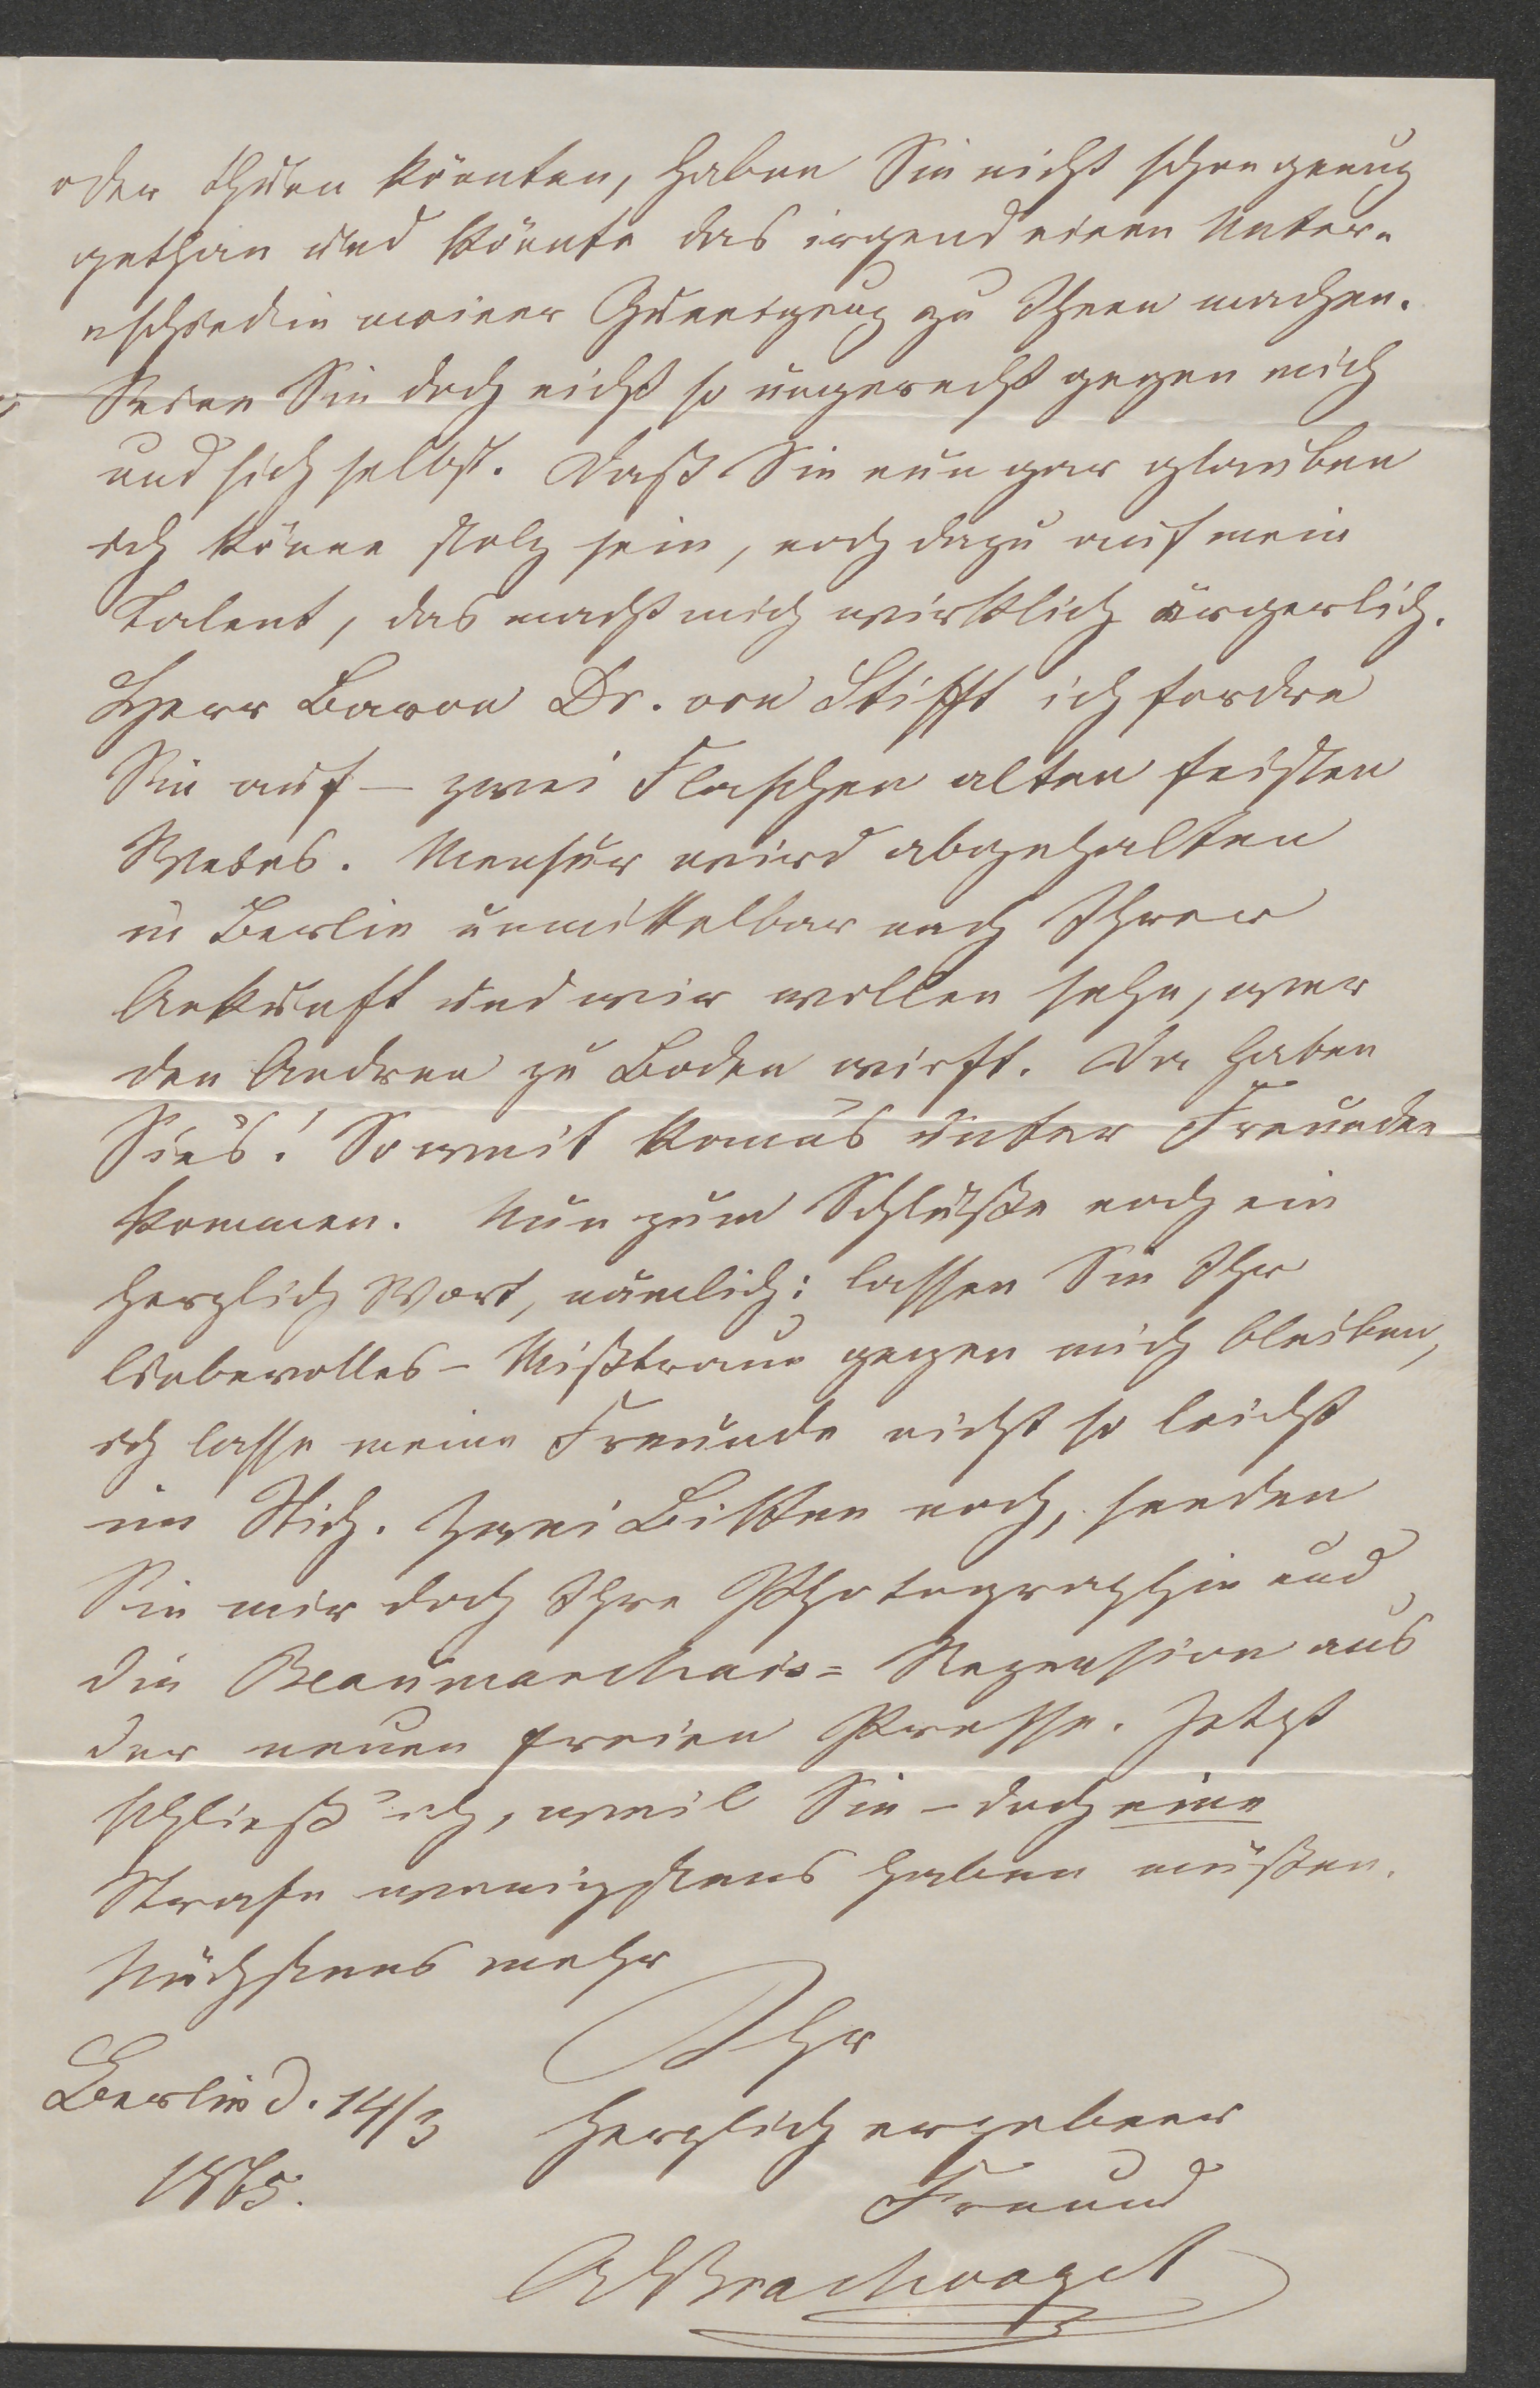 oder thuen könnten, haben Sie nicht schon genug
gethan und könnte das irgend einen Unter-
schied in meiner Gesinnung zu Ihnen machen.
Seien Sie doch nicht so ungerecht gegen mich
und sich selbst. Daß Sie nun gar glauben
ich könne stolz sein, noch dazu auf mein
Talent, das macht mich wirklich ärgerlich.
Herr Baron Dr. von Stifft ich fordre
Sie auf – zwei Flaschen alten
Mensur wird abgehalten
in Berlin unmittelbar nach Ihrer
Ankunft und wir wollen sehn, wer
den Andren zu Boden wirft. Da haben
Sie's! So weit kann's unter Freunden
kommen. Nun zum Schluße noch ein
herzlich Wort, nämlich: lassen Sie Ihr
liebevolles – Mißtraun gegen mich bleiben,
ich lasse meine Freunde nicht so leicht
im Stich. Zwei Bitten noch, senden
Sie mir doch Ihre Photographie und
die Beaumarchais= Rezension aus
der neuen freien Presse. Jetzt
schließ' ich, weil Sie – doch eine
Strafe wenigstens haben müßen.
Nächstens mehr
Ihr
Berlin d. 14/3 herzlich ergebener
1865. Freund
AEBrachvogel